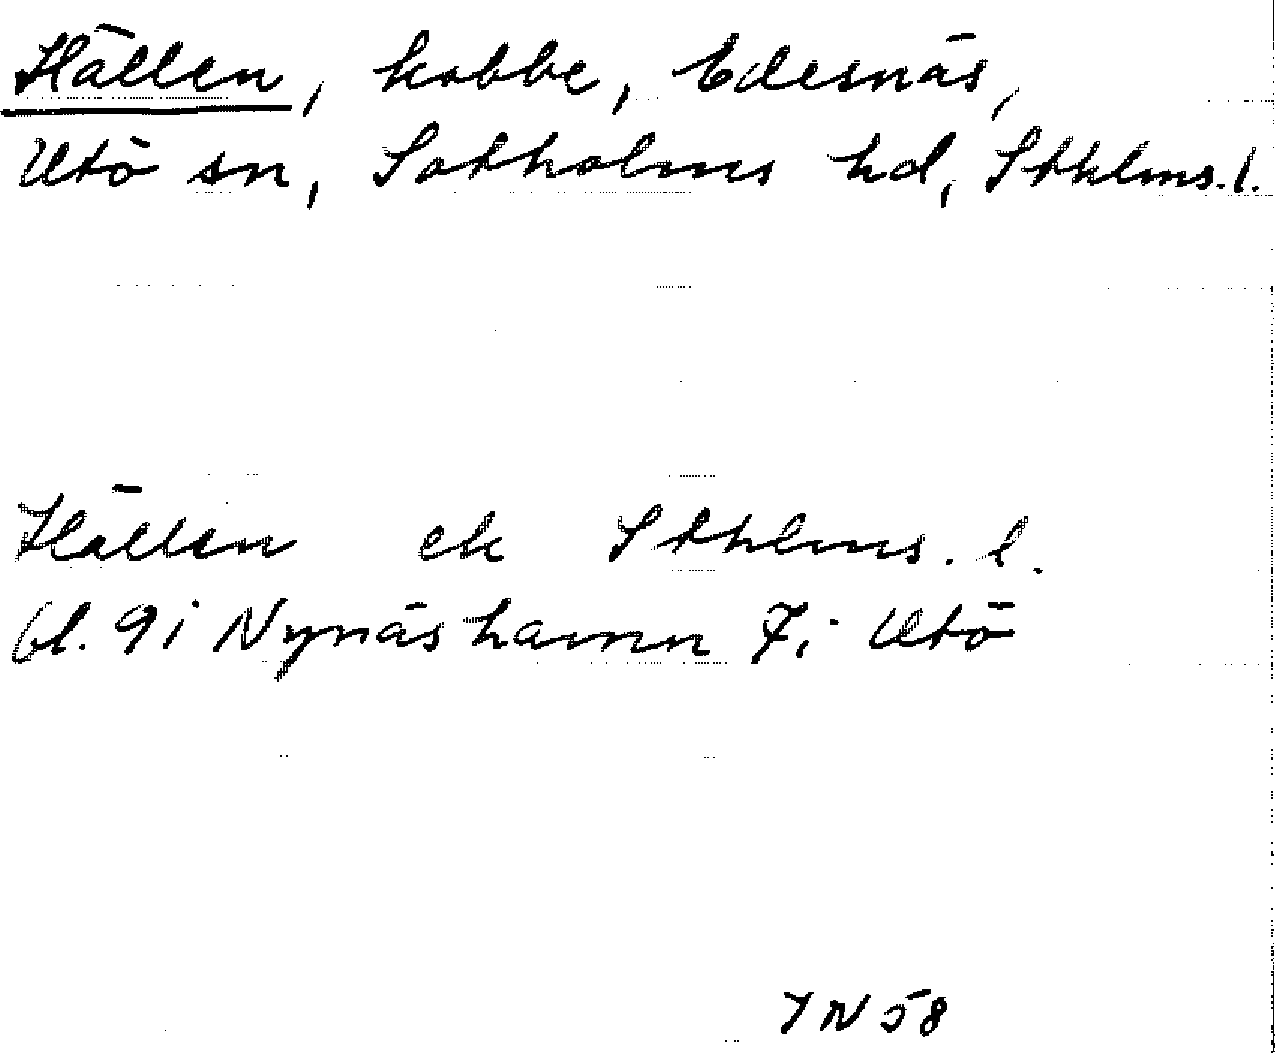 Hällen, kobbe, Edesnäs,
Utö sn, Sotholms hd, Sthlms. l.
Hällen ek Sthlms. l.
bl. 9i Nynäshamn 7i Utö
IN 58